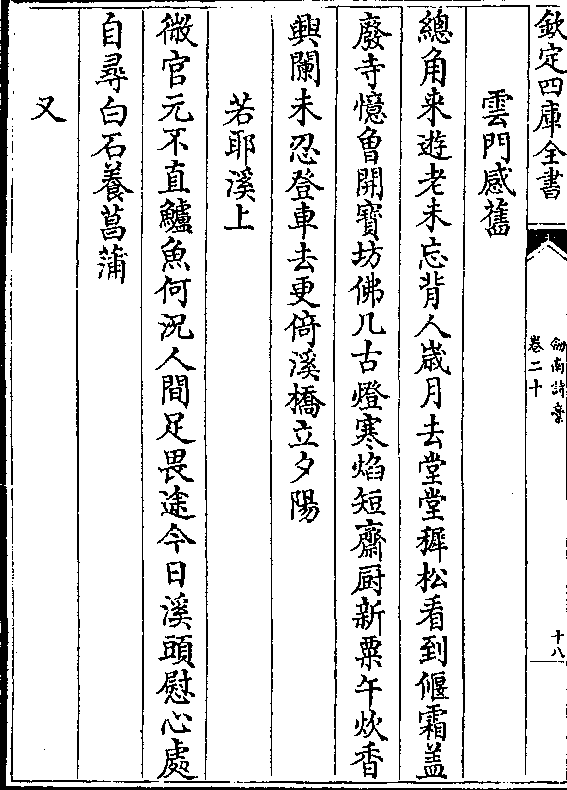 欽定四庫全書
劔南詩藁
卷二十
十八
雲門感舊
總角来遊老未忘背人嵗月去堂堂穉松看到偃霜盖
廢寺憶曾開寳坊佛几古燈寒焰短齋厨新粟午炊香
興闌未忍登車去更倚溪橋立夕陽
若耶溪上
微官元不直鱸魚何況人間足畏途今日溪頭慰心處
自尋白石養菖蒲
又